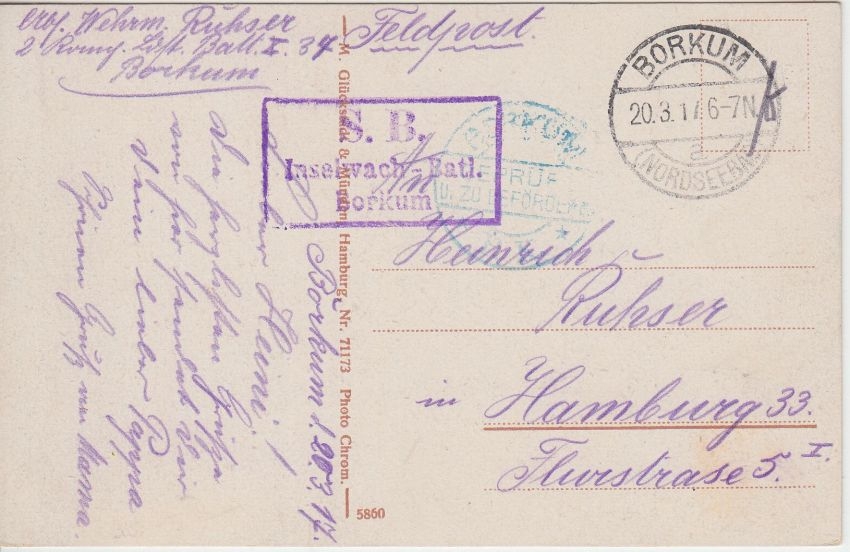 Wehrm. Ruhser
2 Komp. Ldst. Batl. I. 37
Borkum
Feldpost.
BORKUM
20.3.17 6-7N
a
(NORDSEEBAD)
S. B.
Inselwach-Batl.
Borkum
BORKUM
GEPRÜFT
U. ZU BEFÖRDERN
An
Heinrich
Ruhser
in Hamburg 33.
Flurstrase 5. I.
M. Glückstadt & Münden, Hamburg. Nr. 71173 Photo Chrom.
5860
Borkum d. 20.3.17.
Lieber Heini!
Die herzlichsten Grüße
von hier sendet Dir
Dein lieber Pappa
Gruß von Mama.